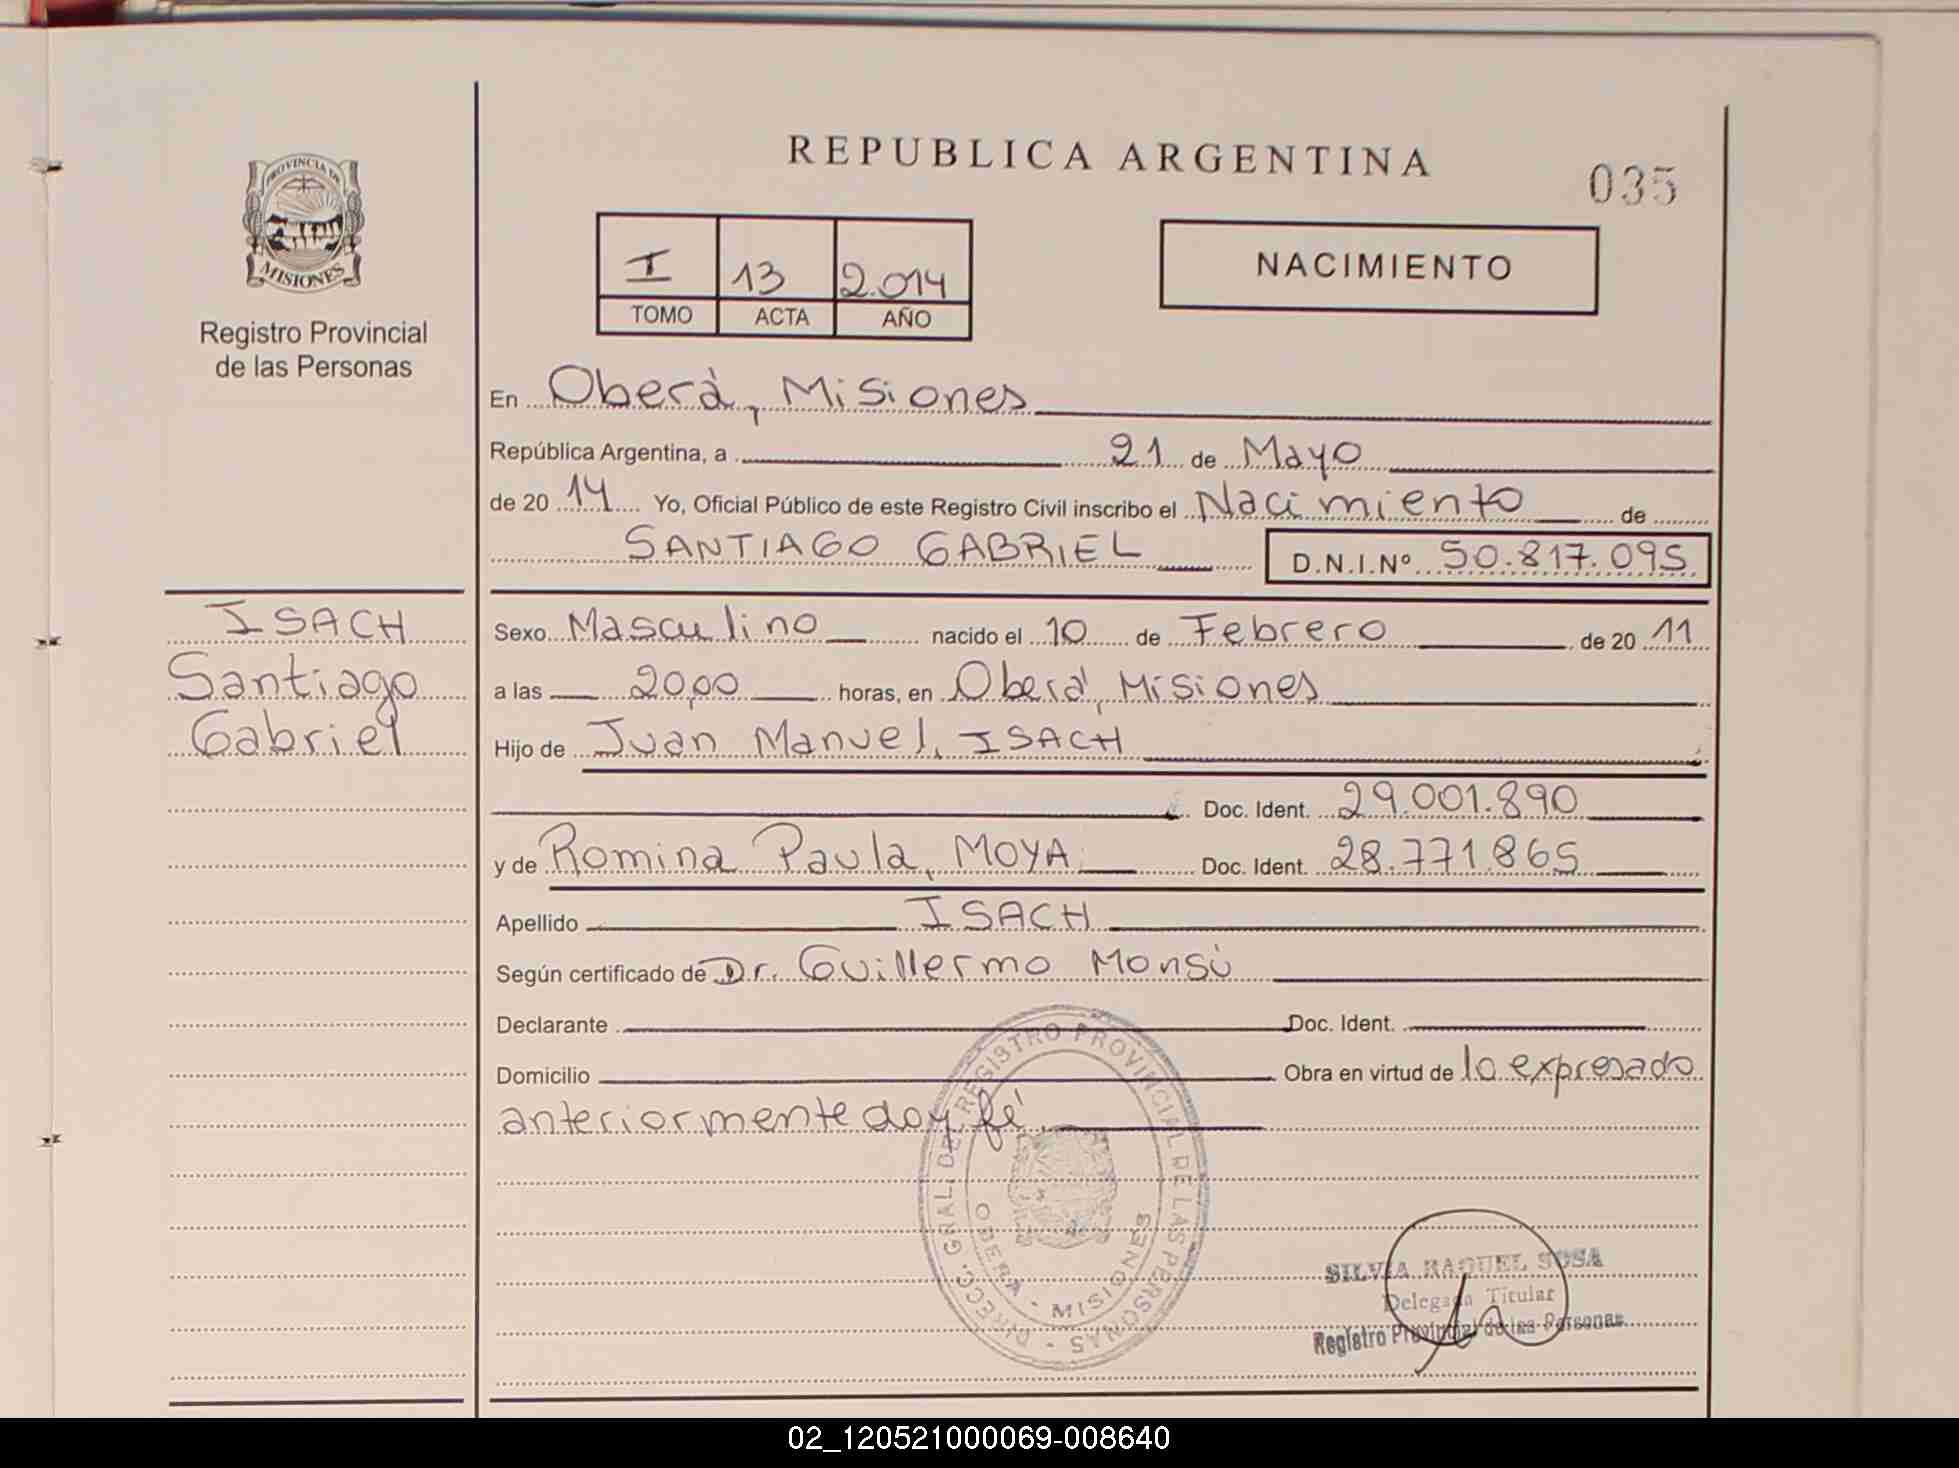 PROVINCIA DE
MISIONES
Registro Provincial
de las Personas
ISACH
Santiago
Gabriel
REPUBLICA ARGENTINA
035
I 13 2.014
TOMO ACTA AÑO
NACIMIENTO
En Oberà, Misiones
República Argentina, a 21 de Mayo
de 20 14 Yo, Oficial Público de este Registro Civil inscribo el Nacimiento de
SANTIAGO GABRIEL D.N.I.Nº 50.817.095
Sexo Masculino nacido el 10 de Febrero de 20 11
a las 20,00 horas, en Oberá, Misiones
Hijo de Juan Manuel, ISACH
Doc. Ident. 29.001.890
y de Romina Paula, MOYA Doc. Ident. 28.771.865
Apellido ISACH
Según certificado de Dr. Guillermo Monsú
Declarante Doc. Ident.
Domicilio Obra en virtud de lo expresado
anteriormente doy fé
DIRECC. GRAL. DEL REGISTRO PROVINCIAL DE LAS PERSONAS
OBERA - MISIONES
SILVIA RAQUEL SOSA
Delegada Titular
Registro Provincial de las Personas
02_120521000069-008640